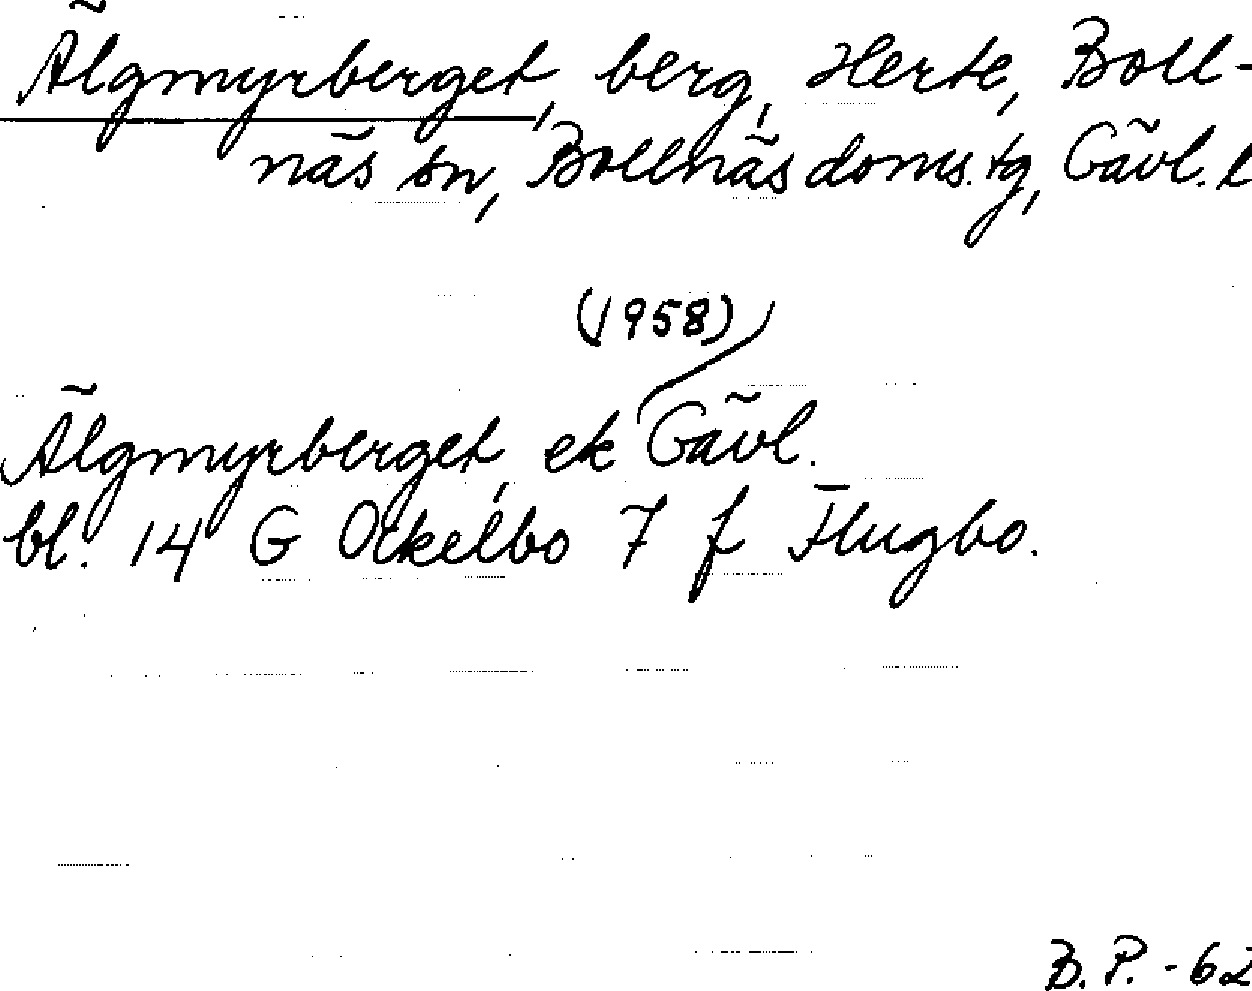 Älgmyrberget, berg, Herte, Boll-
näs sn, Bollnäs doms. tg, Gävl. l
(1958)
Älgmyrberget, ek Gävl.
bl. 14 G Ockelbo 7 f Flugbo.
B. P. - 62